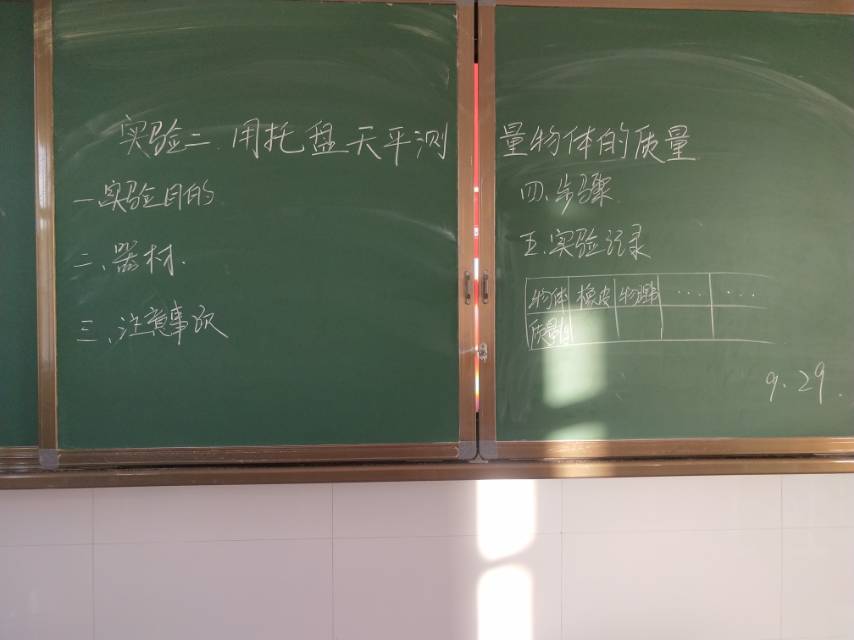 实验二 用托盘天平测量物体的质量
一.实验目的
二、器材.
三、注意事项
四、步骤.
五.实验记录
物体 橡皮 物理书 ... ...
质量/g
9.29.